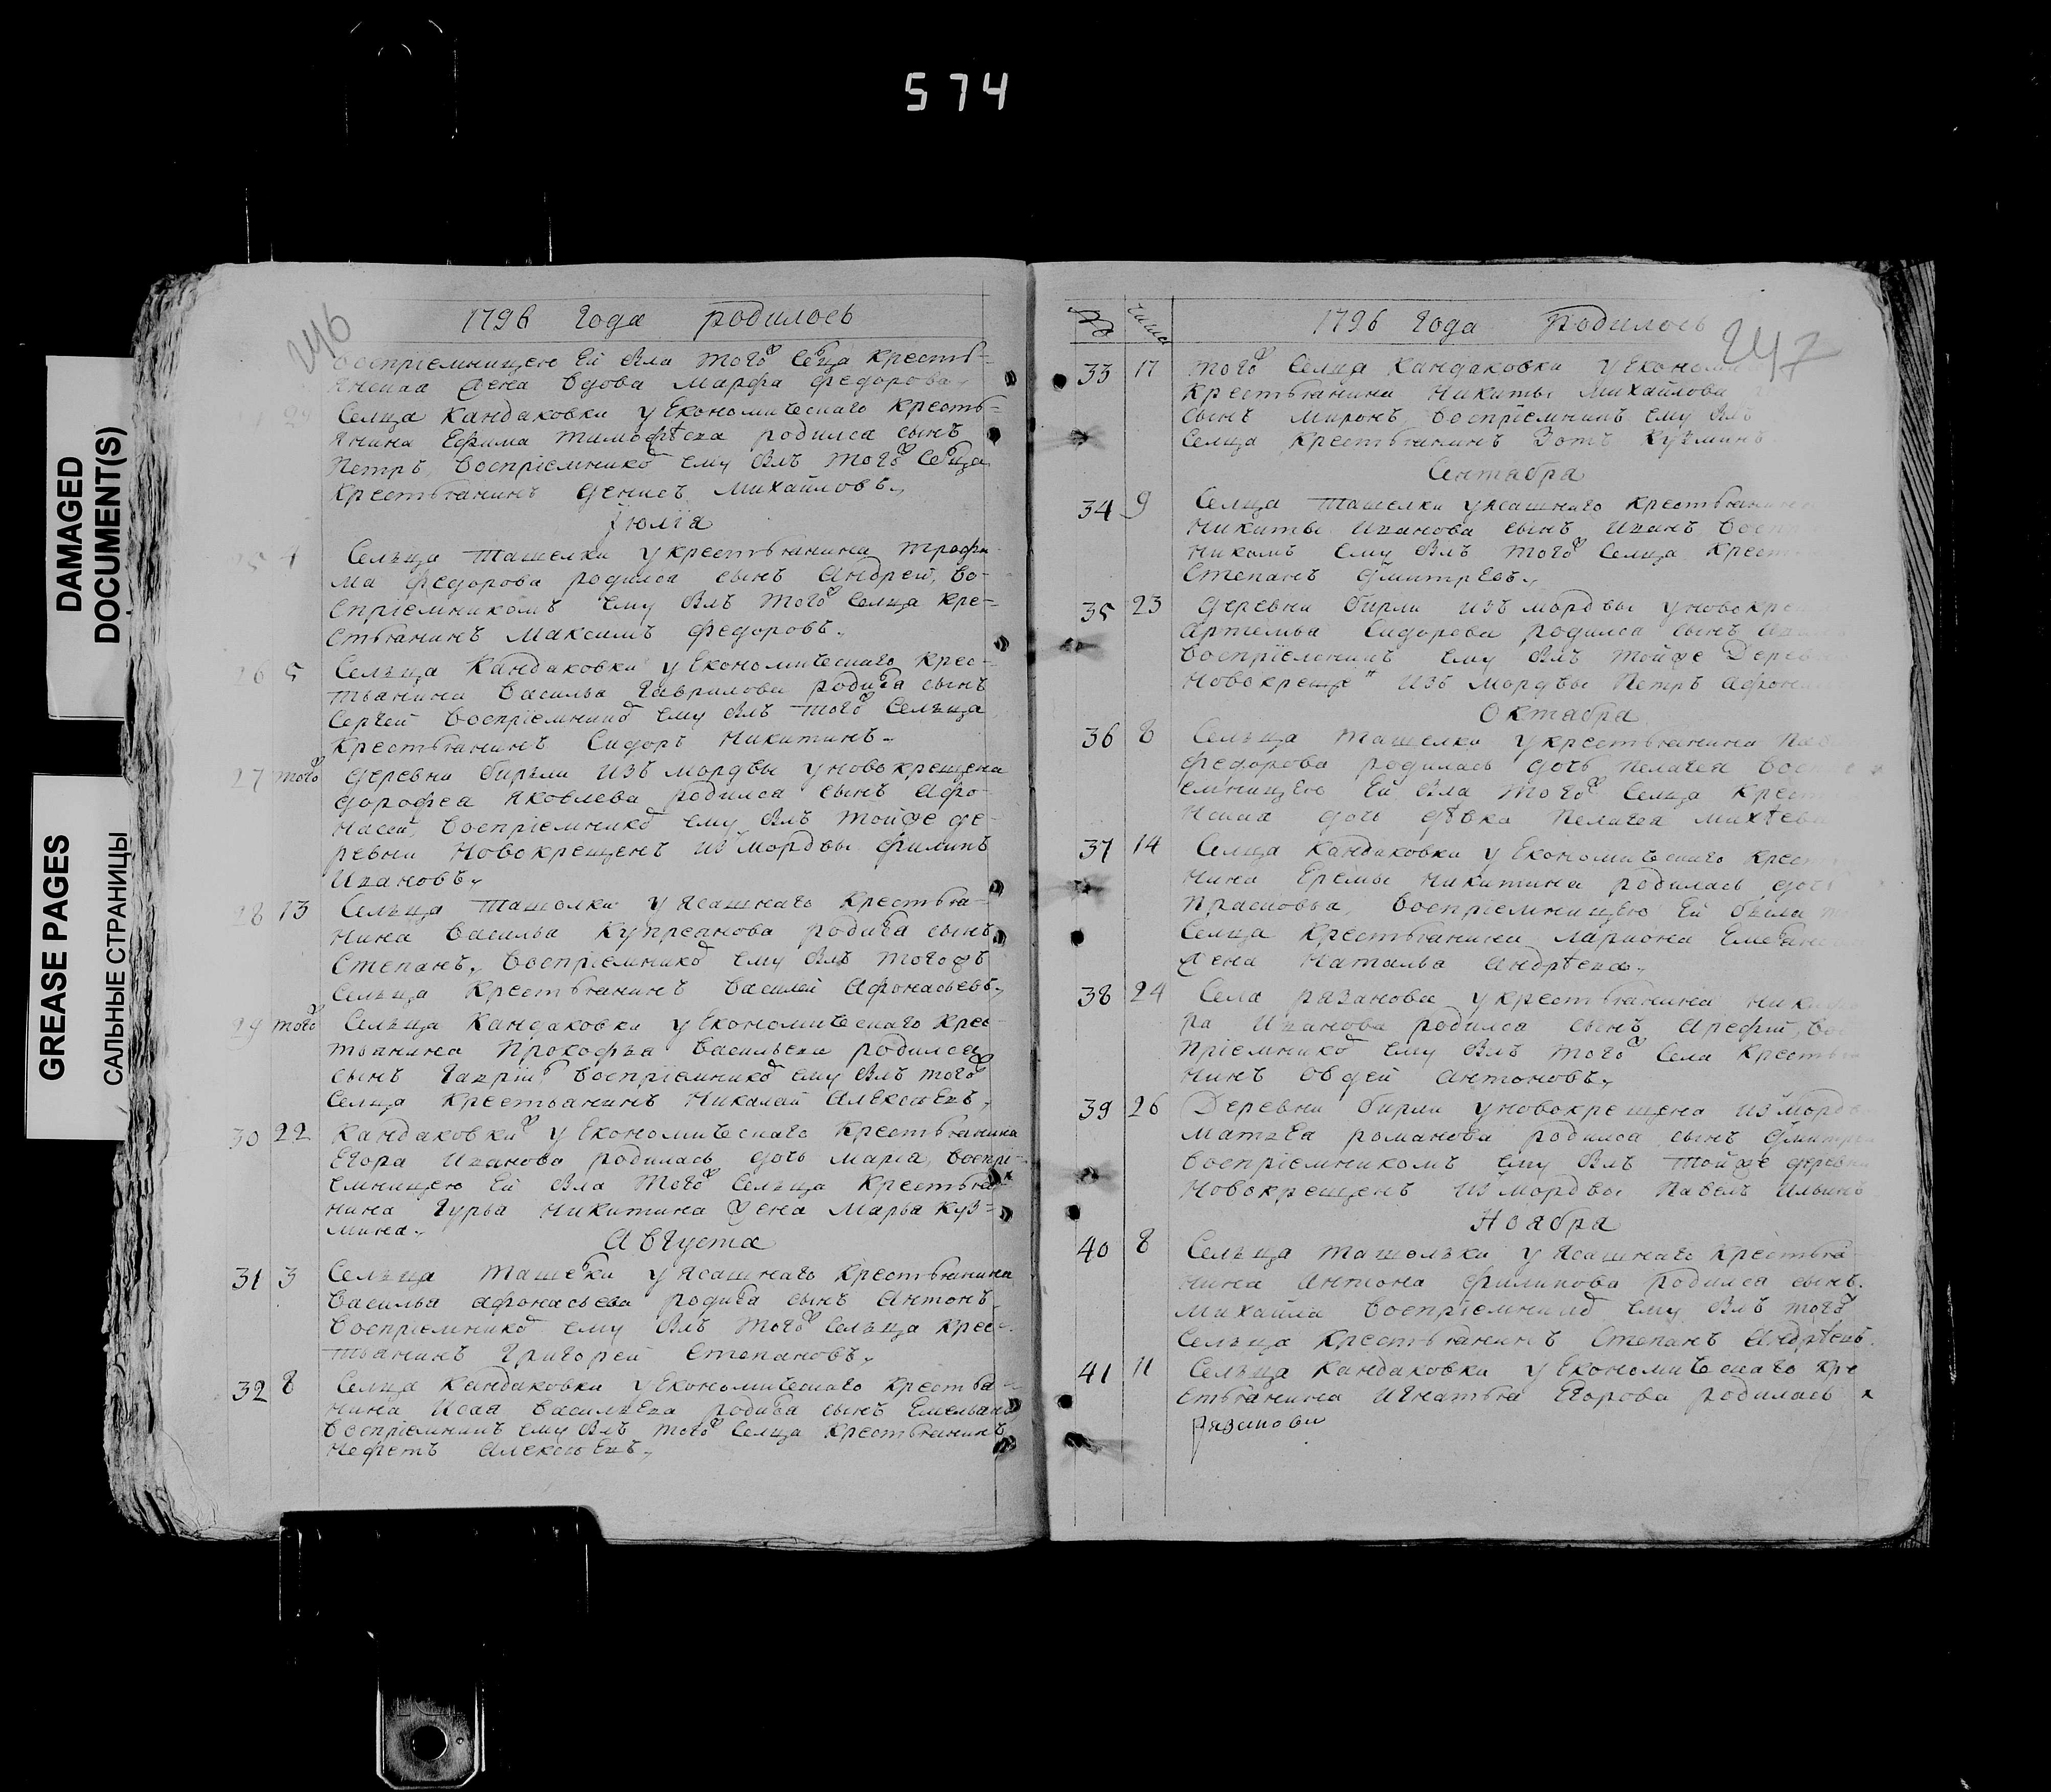 574
DAMAGED
DOCUMENT(S)
GREASE PAGES
САЛЬНЫЕ СТРАНИЦЫ
246
1796 года родилось
воспрiемницею ей бла тогож сельца кресть-
янская жена вдова марфа федорова
24 29 Селца кандаковки у Економическаго кресть-
янина Ефима тимофѣева родился сынъ
Петръ, воспрiемнико ему блъ тогож селца
крестьянинъ денисъ михайловъ
Iюля
25 1 Сельца ташелки у крестьянина трофи
ма федорова родился сынъ Андрей, во-
спрiемникомъ ему блъ тогож селца кре-
стьянинъ максимъ федоровъ
26 5 Сельца кандаковки у Економическаго крес-
тьянина василья гаврилова родился сынъ
Сергей воспрiемнико ему блъ тогож сельца
крестьянинъ Сидоръ никитинъ
27 тогож деревни бирли изъ мордвы у новокрещена
дорофея яковлева родился сынъ афо-
насей, воспрiемнико ему блъ тойже де-
ревни новокрещенъ из мордвы филипъ
Ивановъ
28 13 Сельца ташолки у ясашнаго крестья-
нина василья купреянова родился сынъ
Степанъ, воспрiемнико ему блъ тогожъ
сельца крестьянинъ василей Афонасьевъ
29 тогож Сельца кандаковки у Економическаго крес-
тьянина Прокофья васильева родился
сынъ гаврiил воспрiемнико ему блъ тогож
Селца крестьянинъ николай Алексѣевъ
30 22 кандаковкиж у Економическаго крестьянина
Егора Иванова родилась дочь марiя, воспрi-
емницею ей бла тогож сельца крестья-
нина гурья никитина жена марья куз-
мина
Августа
31 3 Сельца ташелки у ясашнаго крестьянина
василья афонасьева родился сынъ Антонъ
воспрiемнико ему блъ тогож сельца крес-
тьянинъ григорей степановъ
32 8 Селца кандаковки у Економическаго крестья-
нина Исая васильева родился сынъ Емельянъ
воспрiемникъ ему блъ тогож селца крестьянинъ
нефетъ алексѣевъ
247
числа 1796 года родилось
33 17 тогож Селца кандаковки у Економ
крестьянина никиты михайлова
сынъ миронъ воспрiемникъ ему блъ
селца крестьянинъ Зотъ Кузминъ
Сентября
34 9 Селца ташелки у ясашнаго крестьянин
никиты иванова сынъ иванъ восп
никомъ ему блъ тогож селца крест
Степанъ дмитрiевъ
35 23 деревни бирли изъ мордвы у новокре
артемья Сидорова родился сынъ
воспрiемникъ ему блъ тойже дерев
новокреще изъ мордвы Петръ афон
Октября
36 8 Сельца ташелки у крестьянина
федорова родилась дочь пелагея восп
емницею ей бла тогож селца крест
нская дочь дѣвка пелагея михѣева
37 14 Селца кандаковки у Економическаго крест
нина Еремы никитина родилась дочь
прасковья, воспрiемницею ей была
селца крестьянина лариона Емельян
жена наталья андрѣева
38 24 Села рязанова у крестьянина ники
ра иванова родился сынъ арефiй, во
прiемнико ему блъ тогож села кресть
нинъ овдей антоновъ
39 26 Деревни бирли у новокрещена из мордв
матвея романова родился сынъ дмитр
воспрiемникомъ ему блъ тойже деревн
новокрещенъ из мордвы павелъ ильинъ
Ноября
40 8 Сельца ташолки у ясашнаго крестья
нина антона филипова родился сынъ
михайла воспрiемнико ему блъ тогож
сельца крестьянинъ степанъ андрѣевъ
41 11 Сельца кандаковки у Економическаго кре
стьянина игнатья егорова родилась
рязанови